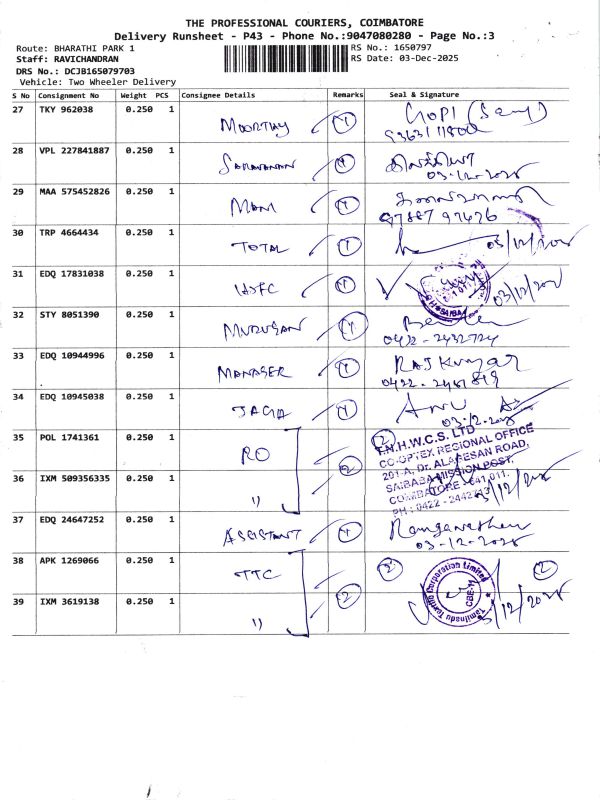 THE PROFESSIONAL COURIERS, COIMBATORE
Delivery Runsheet - P43 - Phone No.:9047080280 - Page No.:3
Route: BHARATHI PARK 1 RS No.: 1650797
Staff: RAVICHANDRAN RS Date: 03-Dec-2025
DRS No.: DCJB165079703
Vehicle: Two Wheeler Delivery
S No Consignment No Weight PCS Consignee Details Remarks Seal & Signature
27 TKY 962038 0.250 1 MOORTHY 1 GOPI
28 VPL 227841887 0.250 1 SARAVANAN 1
03-12-2025
29 MAA 575452826 0.250 1 MANI 1
97887 97426
30 TRP 4664434 0.250 1 TOTAL 1 03/12/2025
31 EDQ 17831038 0.250 1 HDFC 1 03/12/2025
32 STY 8051390 0.250 1 MURUGAN 1
0422-2432724
33 EDQ 10944996 0.250 1 MANAGER 1 RAJ Kumar
34 EDQ 10945038 0.250 1 1 ANU
03-12-2025
35 POL 1741361 0.250 1 RO 2 2
T.N.H.W.C.S. LTD
CO-OPTEX REGIONAL OFFICE
201-A, Dr. ALAGESAN ROAD,
SAIBABA MISSION POST,
36 IXM 509356335 0.250 1 "
COIMBATORE - 641 011.
37 EDQ 24647252 0.250 1 ASSISTANT 1
03-12-2025
38 APK 1269066 0.250 1 TTC 2 2 2
Tamilnadu Tourism Corporation Limited
CBE-11
39 IXM 3619138 0.250 1 "